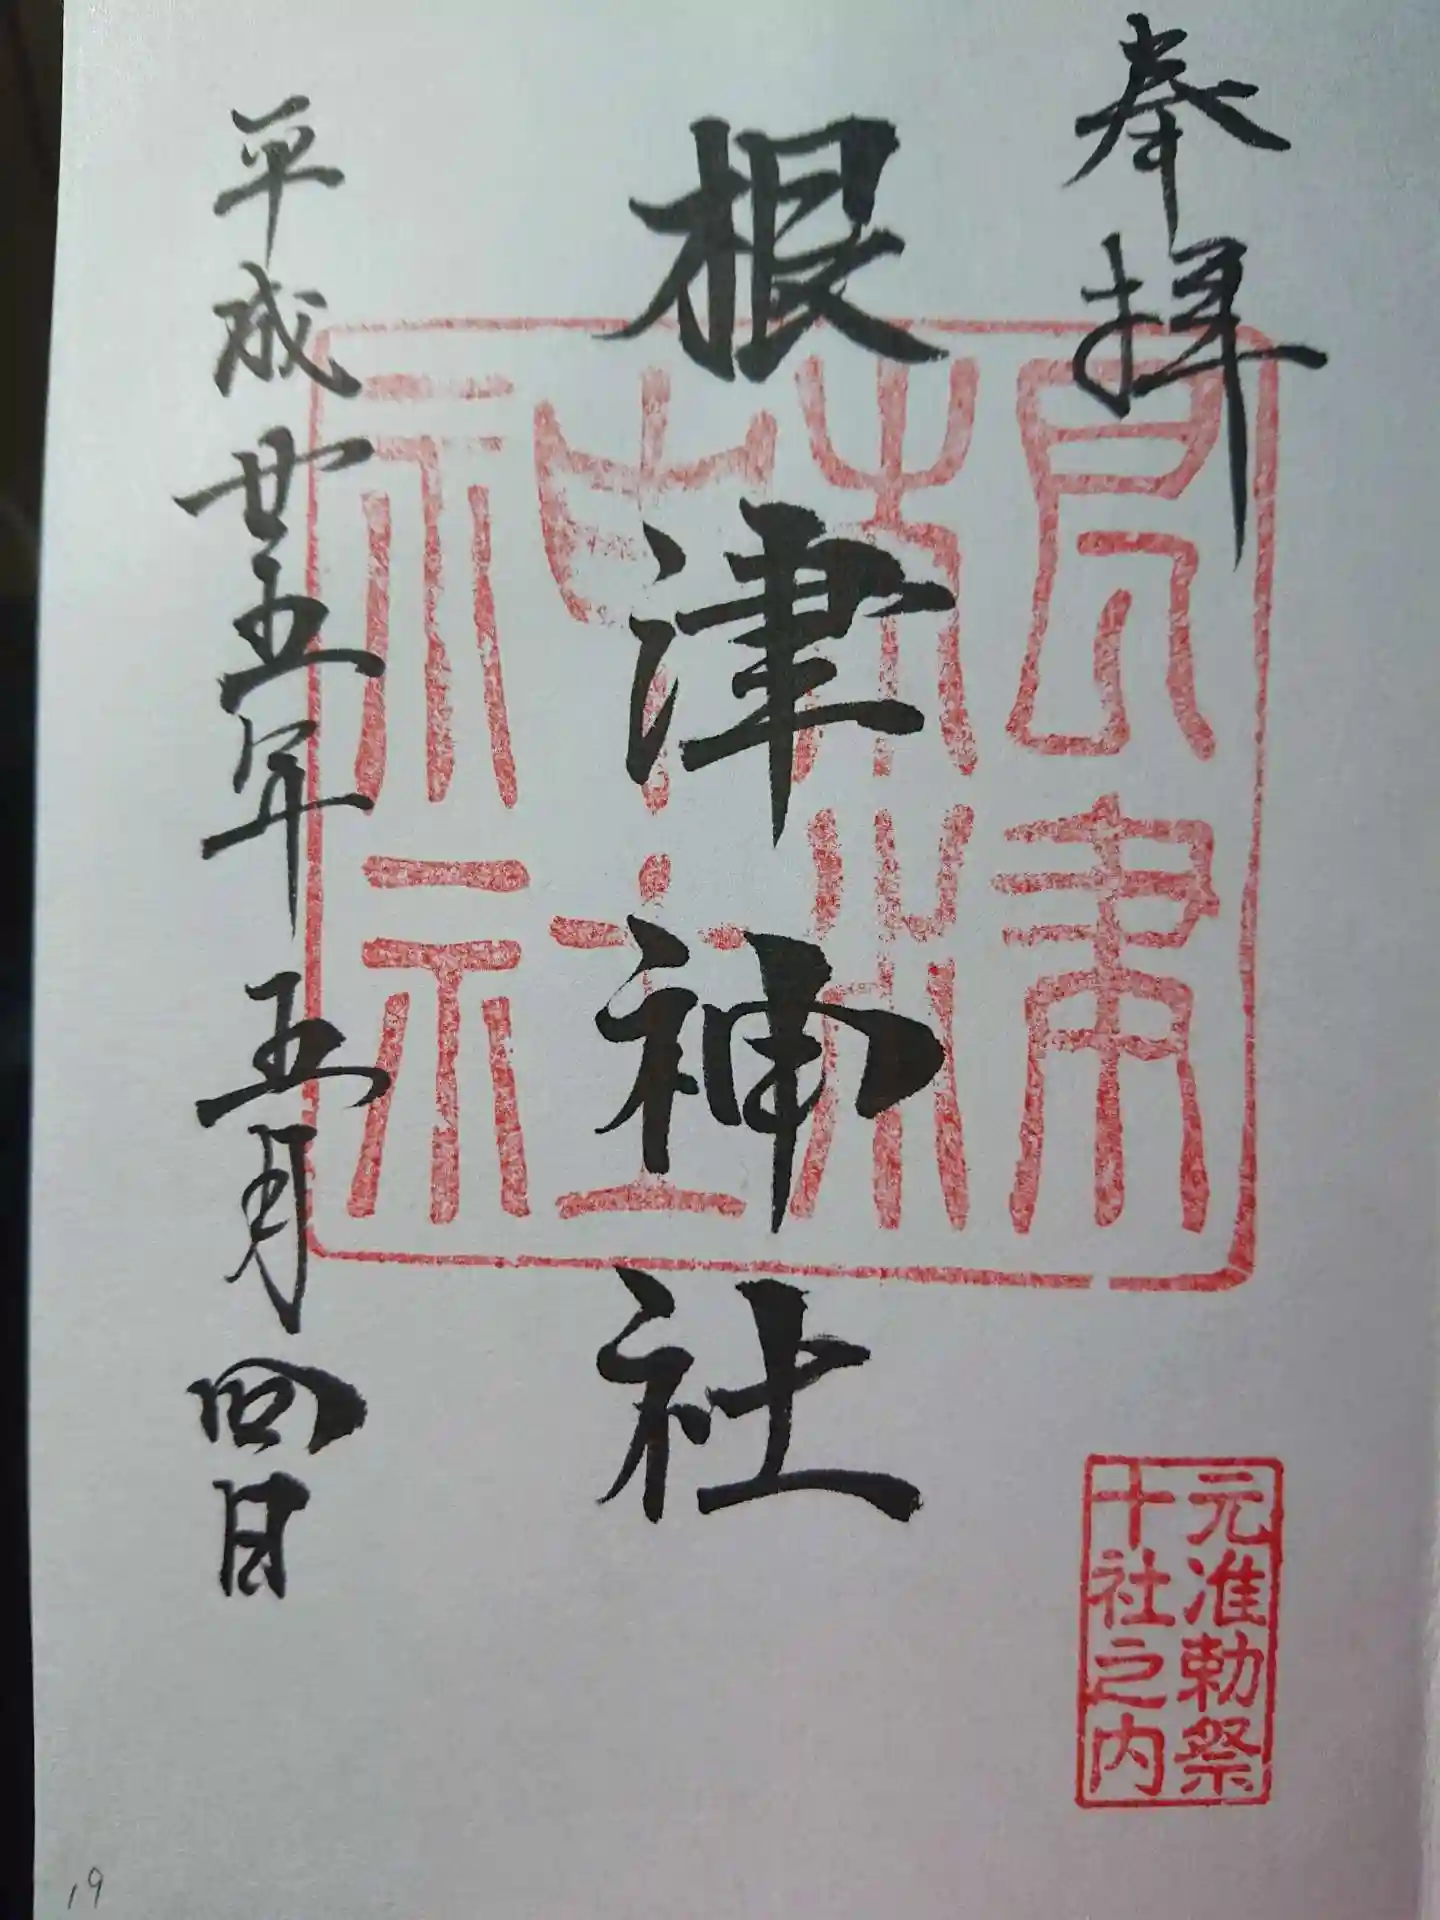 奉拝
根津神社
平成廿五年 五月四日
根津神社
元准勅祭
十社之内
19